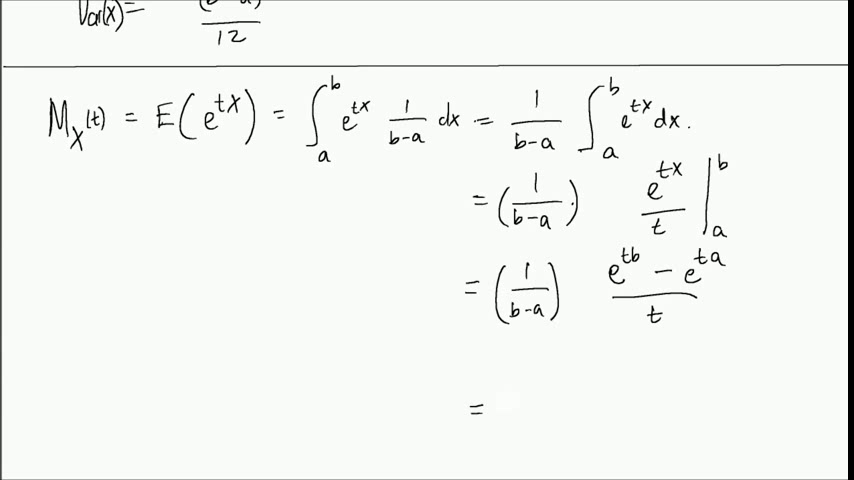 Var(x) = (b-a)² / 12
M_X(t) = E(e^{tX}) = ∫_a^b e^{tx} 1/(b-a) dx = 1/(b-a) ∫_a^b e^{tx} dx.
= (1/(b-a)·) e^{tx}/t |_a^b
= (1/(b-a)) (e^{tb} - e^{ta})/t
=